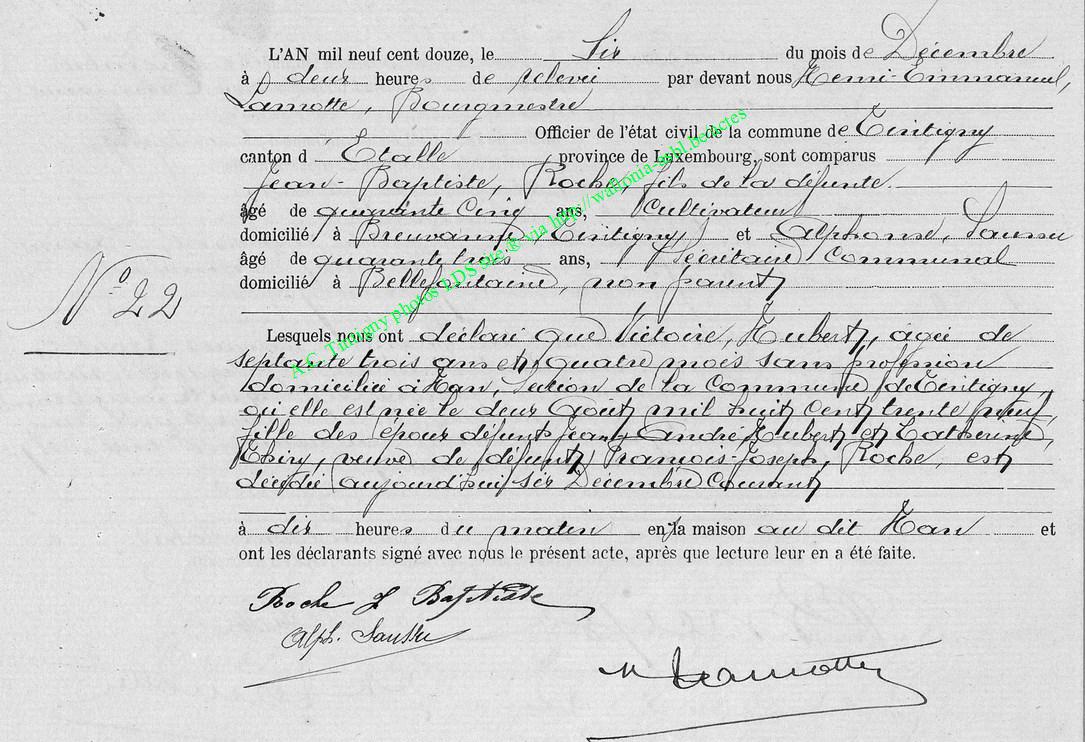 L'AN mil neuf cent douze, le Six du mois de Décembre
à deux heures de relevée par devant nous Remi-Emmanuel,
Lamotte, Bourgmestre
Officier de l'état civil de la commune de Tintigny
canton d Etalle province de Luxembourg, sont comparus
Jean-Baptiste, Roche, fils de la défunte.
âgé de quarante Cinq ans, Cultivateur
domicilié à Breuvanne, Tintigny et Alphonse,
âgé de quarante trois ans, Sécrétaire Communal
domicilié à Bellefontaine, non parent
N° 22
Lesquels nous ont déclaré que Victoire, Hubert, agée de
septante trois ans et quatre mois sans profession
domiciliée à Han, section de la Commune de Tintigny
où elle est née le deux Août mil huit cent trente neuf,
fille des époux défunts Jean-André Hubert et Catherine,
Thiry, veuve de défunt François-Joseph, Roche, est
décédée aujourd'hui six Décembre Courant
à dix heures du matin en la maison au dit Han et
ont les déclarants signé avec nous le présent acte, après que lecture leur en a été faite.
Roche J Baptiste
Alph.
Lamotte
A.C. Tintigny photos LDS site & via http://wallonia-asbl.be/actes